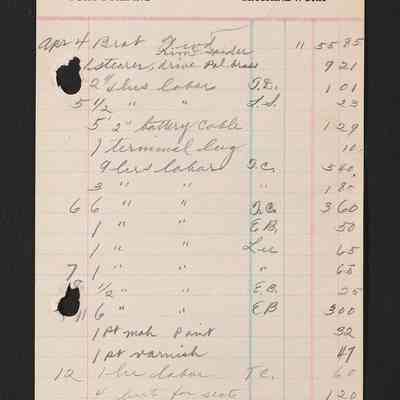 Apr 4 Brot Fwd 11 55 85
Kim Sander
steares, drive Pal. brass 9 21
2 hrs labor T.C. 1 01
5 1/2 " " L.S. 23
5' 2" battery Cable 1 29
1 terminal lug 10
9 hrs labor T.C. 5 40
3 " " " 1 80
6 6 " " T.C. 3 60
1 " " E.B. 50
1 " " Lee 65
7 1 " " " 65
1/2 " " E.B. 25
11 6 " " EB 3 00
1 Pt mah Paint 32
1 pt varnish 47
12 1 hr labor T.C. 60
for seats 1 20